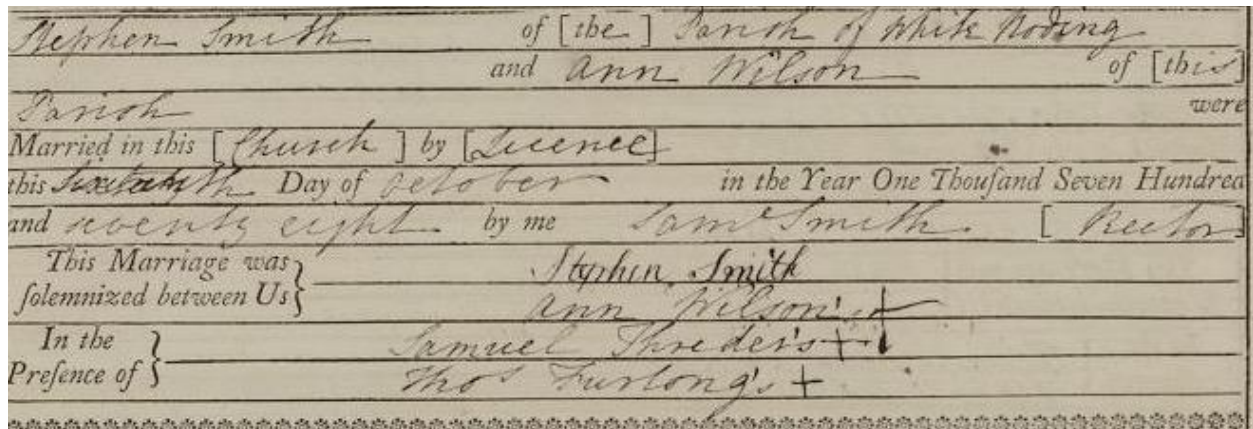 Stephen Smith of [the ] Parish of White Roding
and Ann Wilson of [this]
Parish were
Married in this [Church ] by [Licence]
this Day of October in the Year One Thouſand Seven Hundred
and seventy eight by me Saml Smith [ Rector]
This Marriage was Stephen Smith
ſolemnized between Us } Ann Wilson's +
In the Samuel Threder's +
Preſence of } Thos Furlong's +